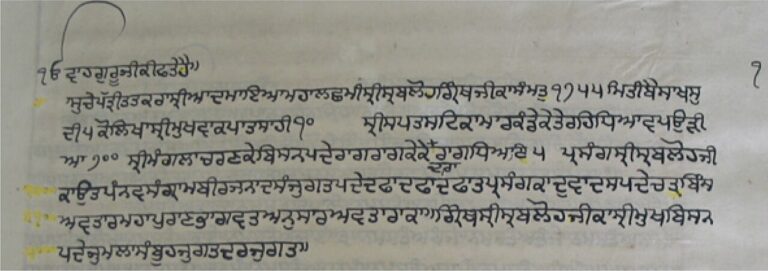 ੧ਓ ਵਾਹਗੁਰੂਜੀਕੀਫਤੇਹੈ॥ ੧
ਸੂਚੇਪਤ੍ਰੀਤਤਕਰਾਸ੍ਰੀਆਦਮਾਇਆਮਹਾਲਛਮੀਸ੍ਰੀਸ੍ਰਬਲੋਹਗ੍ਰਿੰਥਜੀਕਾਸੰਮਤੁ੧੭੫੫ਮਿਤੀਬੈਸਾਖਸੁ
ਦੀ੫ਕੌਲਿਖਾਸ੍ਰੀਮੁਖਵਾਕਪਾਤਸਾਹੀ੧੦ ਸ੍ਰੀਸਪਤਸਟਿਕਾਮਾਰਕੰਡੇਕੇਤੇਰਹਿਧਿਆਵਪਉੜੀ
ਆ੭੦੦ ਸ੍ਰੀਮੰਗਲਾਚਰਣਕੇਬਿਸਨਪਦੇਰਾਗਰਾਗਕੇ ਰਾਗਧਿਆਇ ੫ ਪ੍ਰਸੰਗਸ੍ਰੀਸ੍ਰਬਲੋਹਜੀ
ਕਾਉਤਪੰਨਵਸੰਗ੍ਰਾਮਬੀਰਜਨਾਦਸੰਜੁਗਤਪਦੇਦਫਾਦਫਾਦਫਾਤਪ੍ਰਸੰਗਕਾਦੂਵਾਦਸਪਦੇਚਤ੍ਰਬਿੰਸ
ਅਵਤਾਰਮਹਾਪੁਰਾਣਭਾਗਵਤਅਨੁਸਾਰਅਵਤਾਰਾਕਾ॥ਗ੍ਰਿੰਥਸ੍ਰੀਸ੍ਰਬਲੋਹਜੀਕਾਸ੍ਰੀਮੁਖਬਿਸਨ
ਪਦੇਜੁਮਲਾਸੰਬੂਹਜੁਗਤਦਰਜੁਗਤ॥